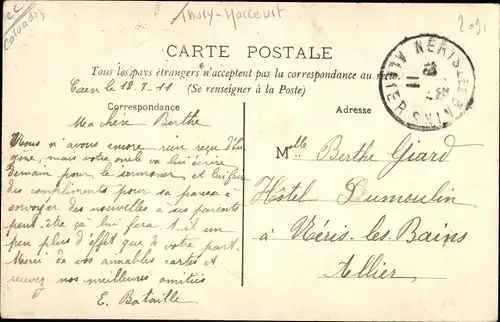 cc
Calvados
Thury-Harcourt
CARTE POSTALE
Tous les pays étrangers n'acceptent pas la correspondance au
Caen 12.7.11
(Se renseigner à la Poste)
Correspondance
Ma chère Berthe
Nous n'avons encore rien reçu d'Eu
gène, mais votre oncle va lui écrire
demain pour le sermoner et lui faire
des compliments pour sa paresse à
envoyer des nouvelles à ses parents
peut-être çà lui fera t-il un
peu plus d'effet que de votre part.
Merci de vos aimables cartes et
recevez nos meilleures amitiés
E. Bataille
Adresse
Melle Berthe Giard
Hôtel Dumoulin
à Néris-les-Bains
Allier
NERIS LES BAINS
ALLIER
11